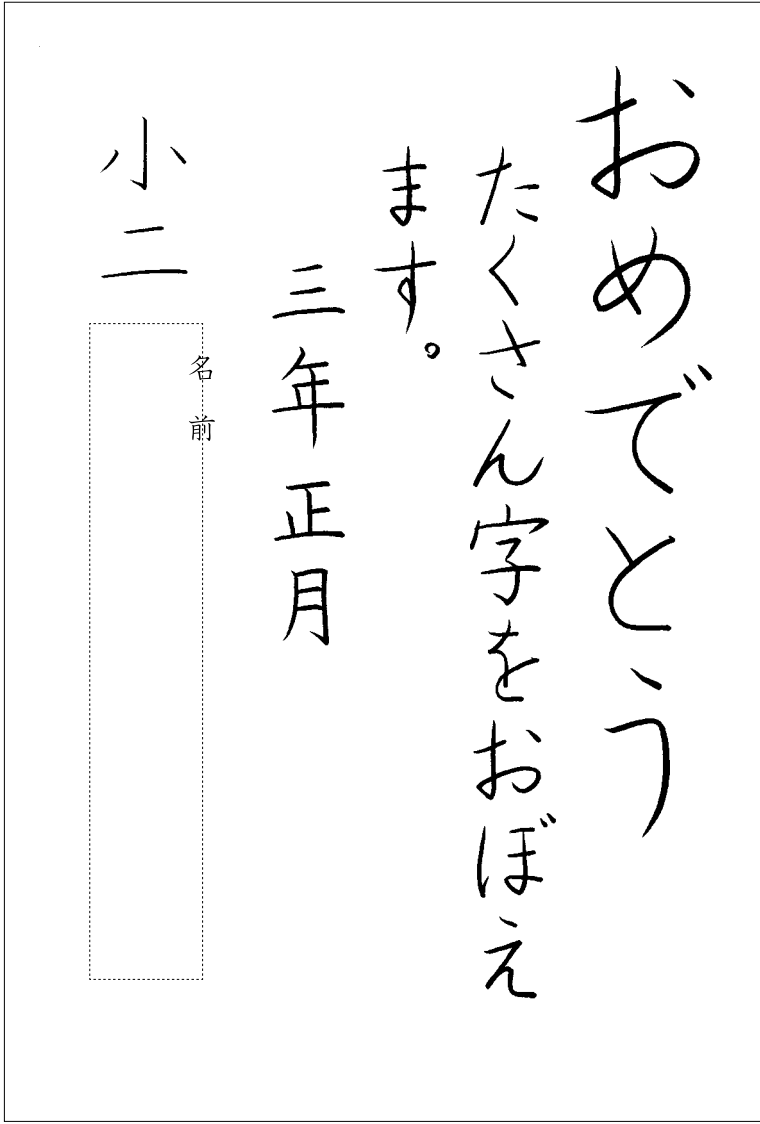 おめでとう
たくさん字をおぼえ
ます。
三年正月
小二
名前